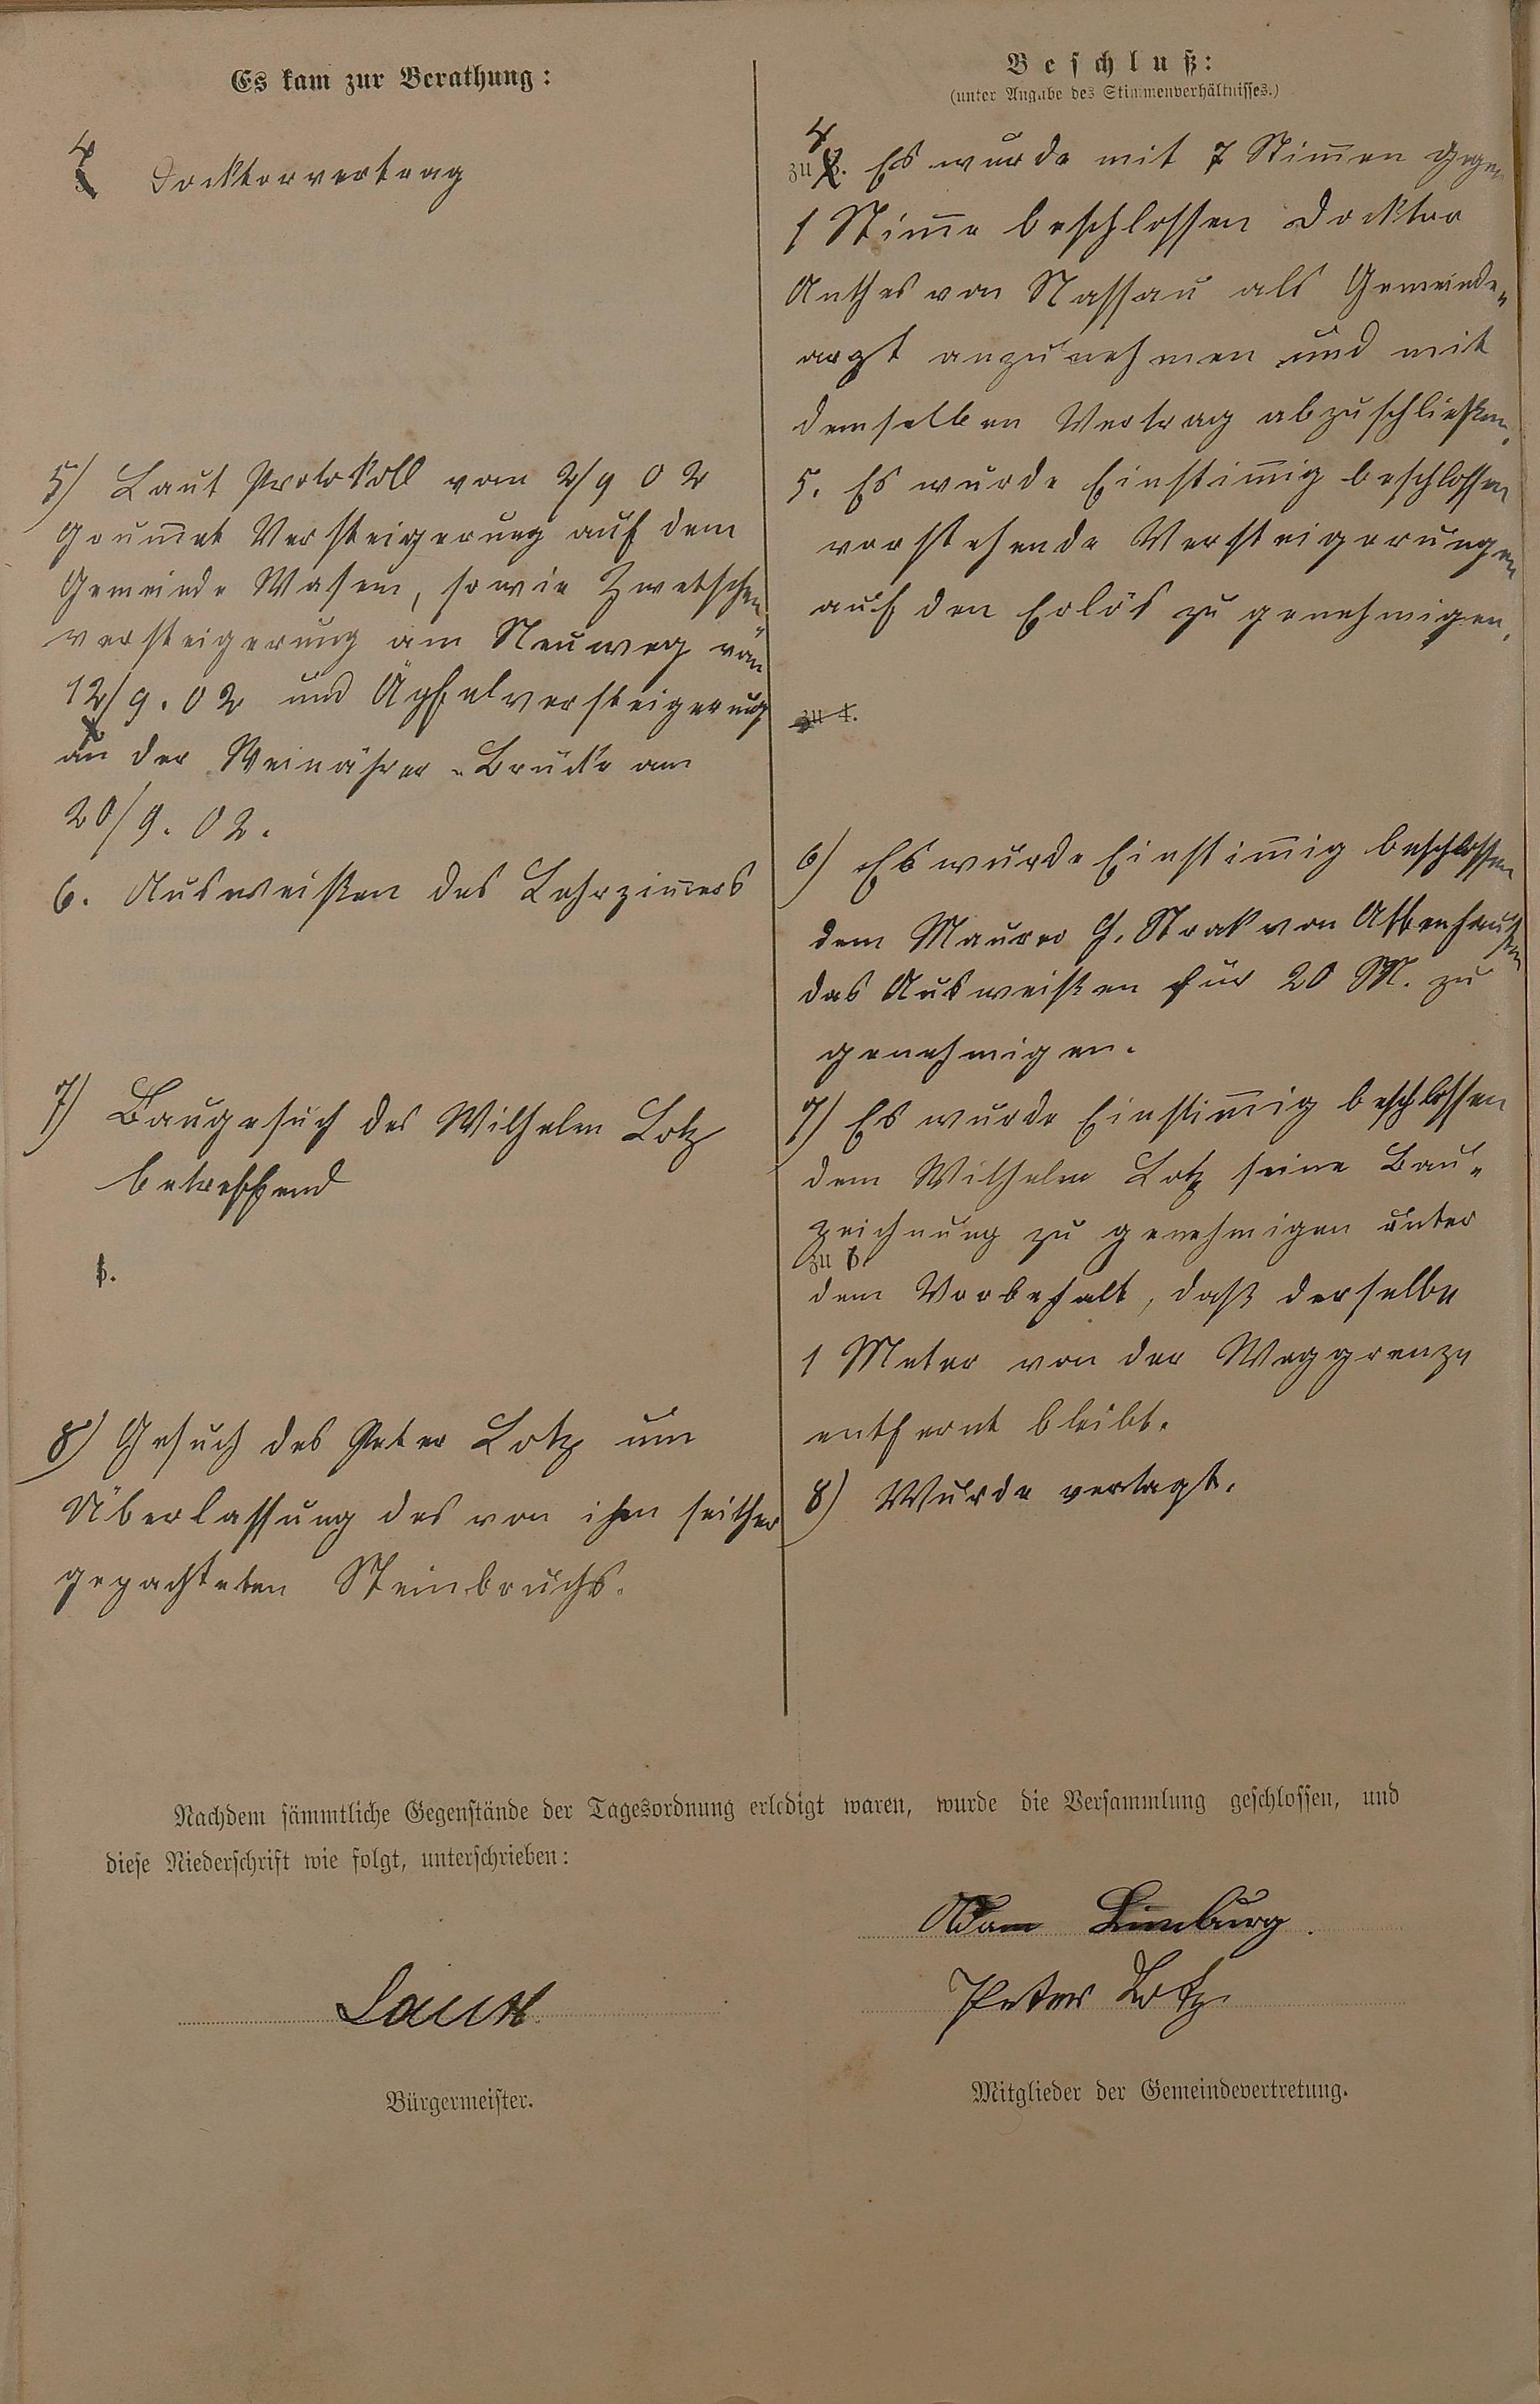 Es kam zur Berathung:
4
Docktorvertrag
5) Laut Protokoll vom 2/9 02
Grummet Versteigerung auf dem
Gemeinde Wasem, sowie Zwetschen
versteigerung am Neuweg vom
12/9. 02 und Äpfelversteigerung
an der Weinährer-Brücke am
20/9. 02.
6. Ausweißen des Lehrzimmers
7) Baugesuch des Wilhelm Lotz
betreffend
5.
8) Gesuch des Peter Lotz um
Überlassung des von ihm seither
gepachteten Steinbruchs.
Beschluß:
(unter Angabe des Stimmenverhältnisses.)
4
zu 3. Es wurde mit 7 Stimmen gegen
1 Stimme beschlossen Docktor
Anthes von Nassau als Gemeinde-
arzt anzunehmen und mit
demselben Vertrag abzuschließen.
5. Es wurde Einstimmig beschlossen
vorstehende Versteigerungen
auf den Erlös zu genehmigen.
zu 4.
6) Es wurde Einstimmig beschlossen
dem Maurer J. Strak von Attenhausen
das Ausweißen für 20 M. zu
genehmigen.
7) Es wurde Einstimmig beschlossen
dem Wilhelm Lotz seine Bau-
zeichnung zu genehmigen unter
zu 5.
dem Vorbehalt, daß derselbe
1 Meter von der Weggrenze
entfernt bleibt.
8) Wurde vertagt.
Nachdem sämmtliche Gegenstände der Tagesordnung erledigt waren, wurde die Versammlung geschlossen, und
diese Niederschrift wie folgt, unterschrieben:
Adam Limburg.
Peter Lotz
Bürgermeister.
Mitglieder der Gemeindevertretung.